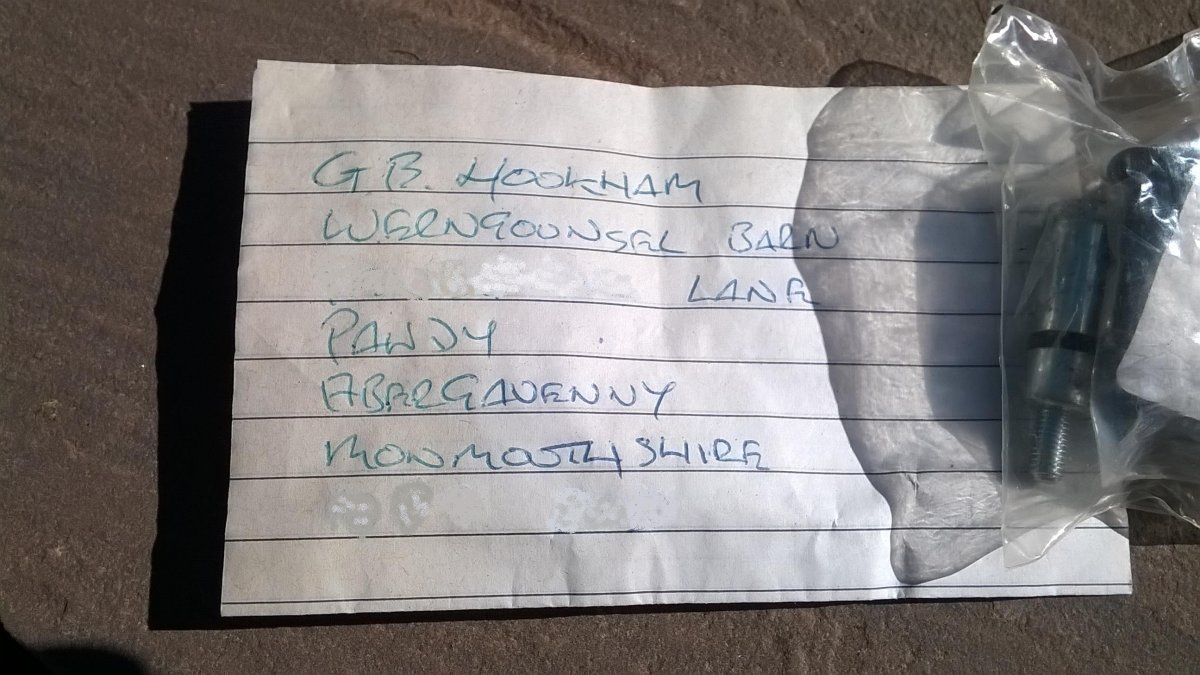 G B. HOOKHAM
WERNGOUNSEL BARN
LANE
PANDY
ABERGAVENNY
MONMOUTHSHIRE